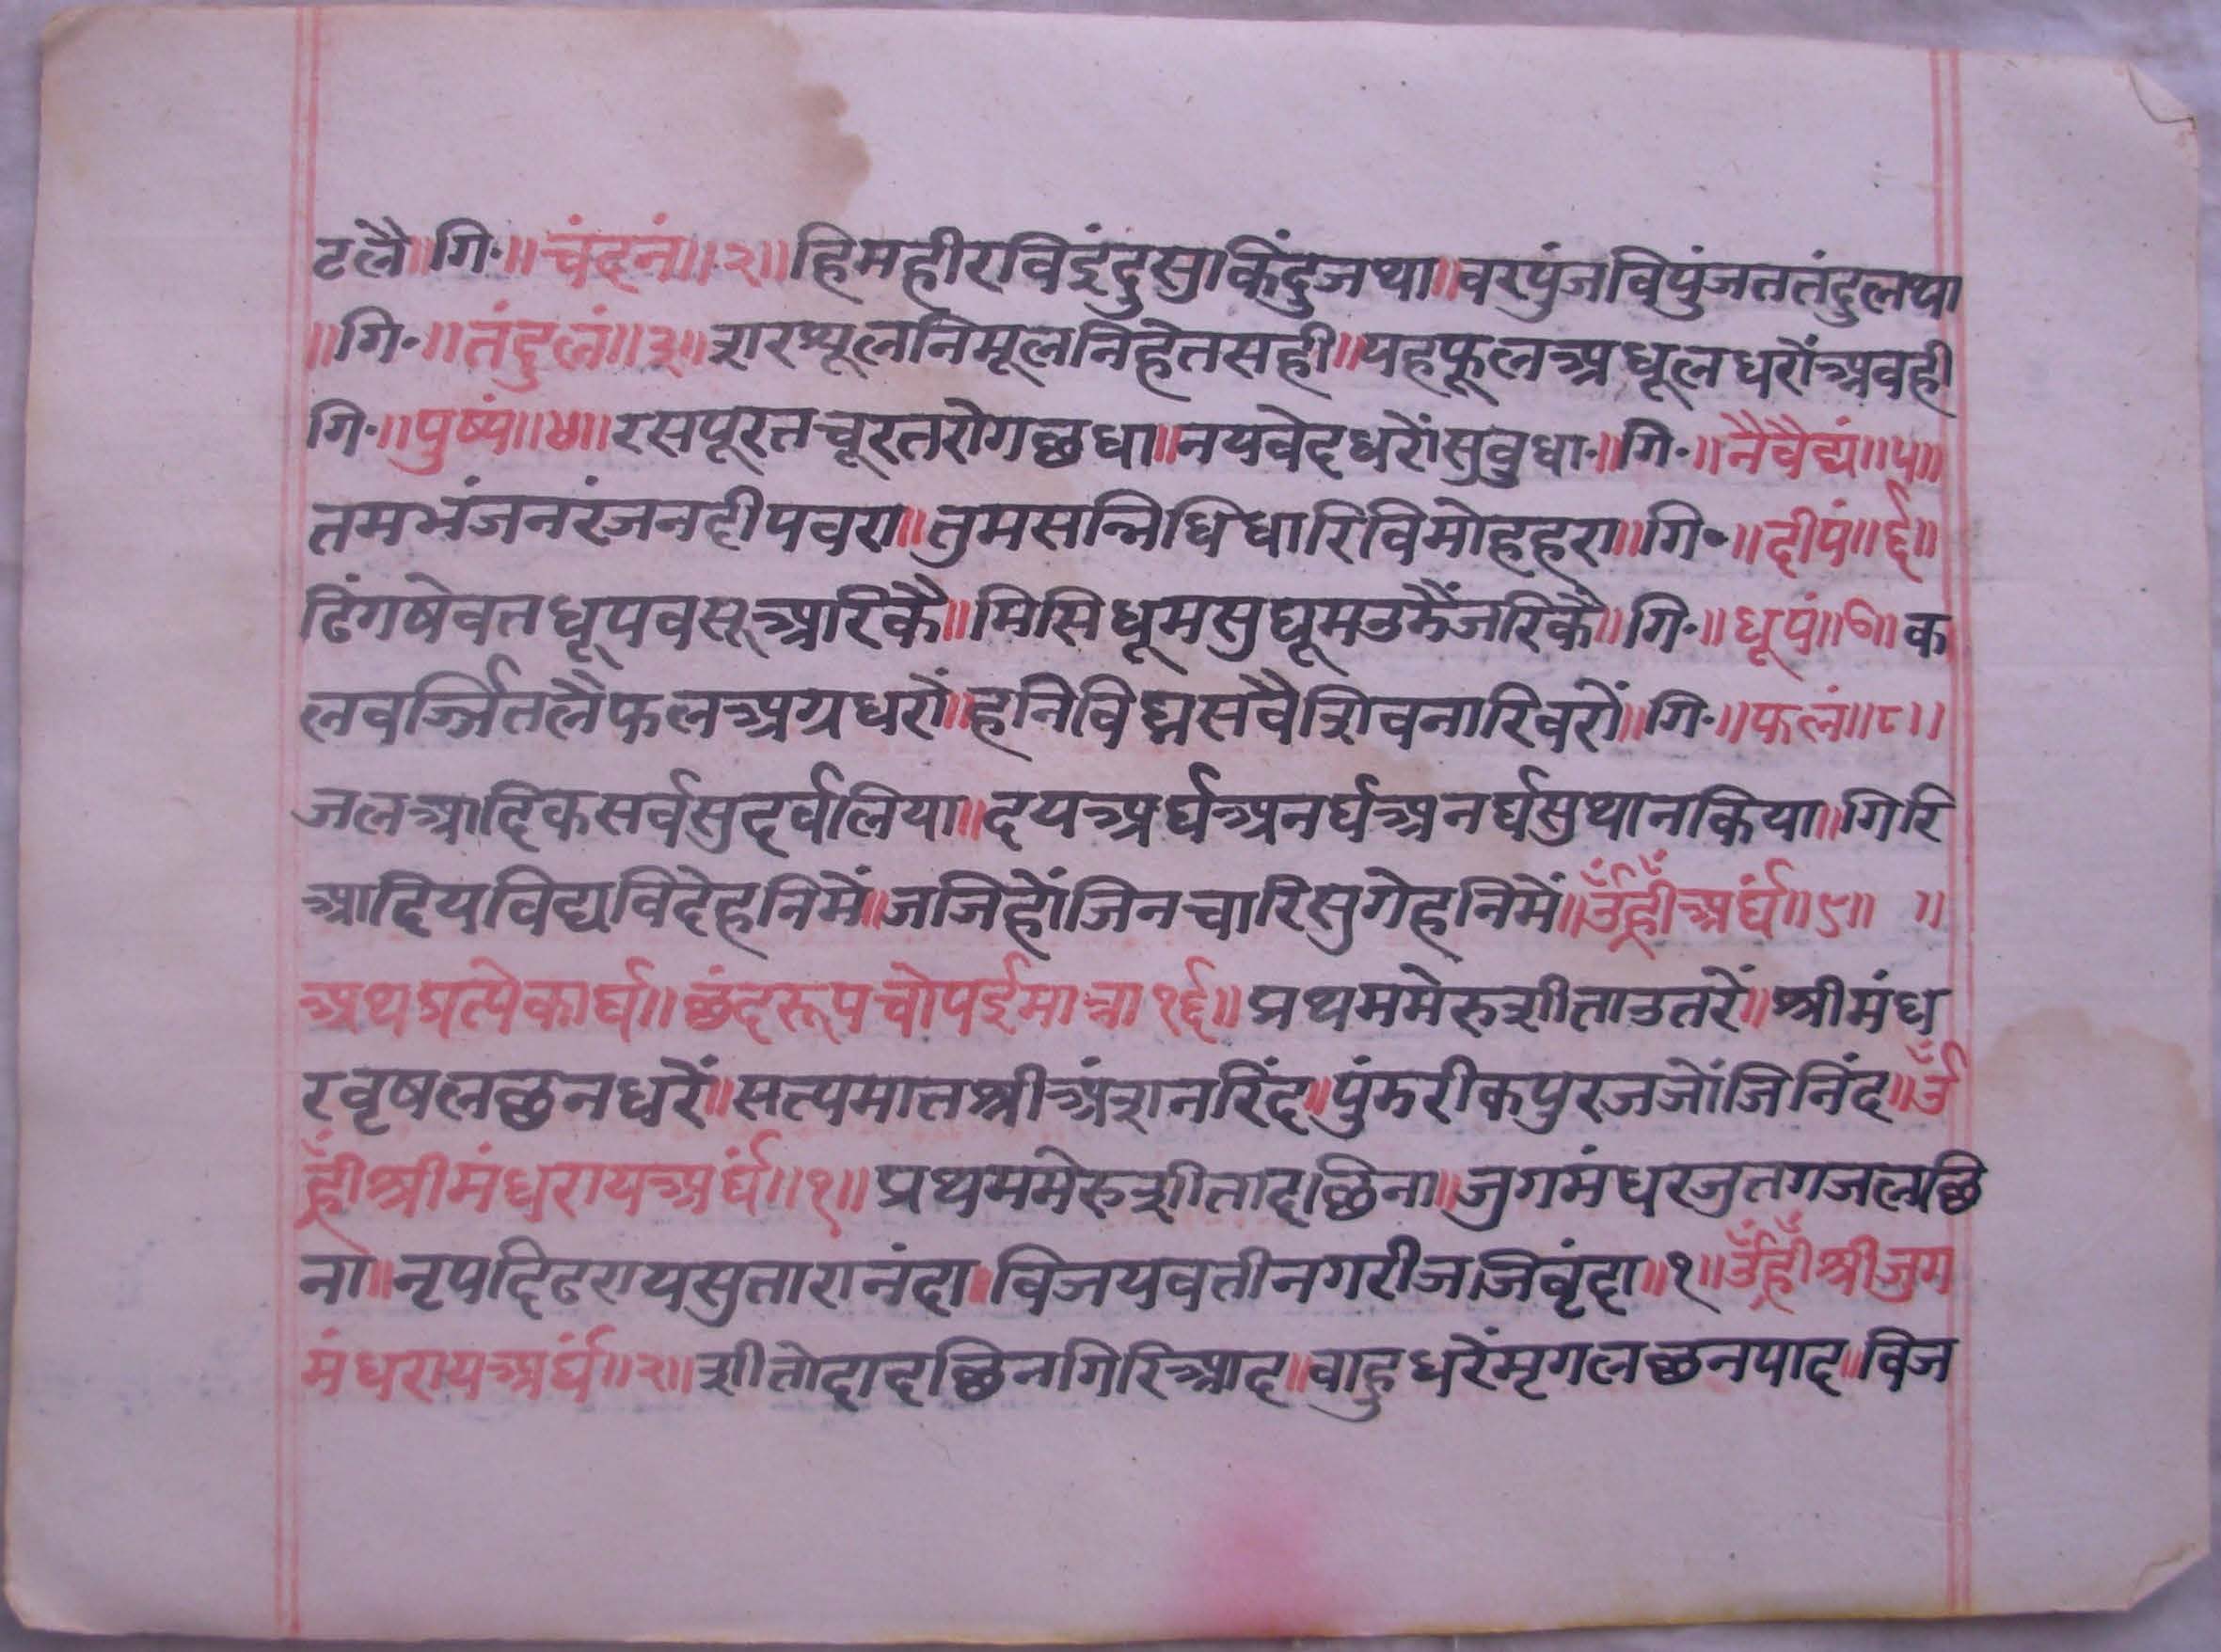 टलै॥गि॰॥चंदनं॥२॥हिमहीरविइंदुसुकिंदुजथा॥वरपुंजविपुंजततंदुलथा
॥गि॰॥तंदुलं॥३॥शरश्यूलनिमूलनिहेतसही॥यहफूलअधूलधरोंअवही
गि॰॥पुष्पं॥४॥रसपूरतचूरतरोगछधा॥नयवेदधरोंसुवुधा॰॥गि॰॥नैवैद्यं॥५॥
तमभंजनरंजनदीपवरा॥तुमसन्निधिधारिविमोहहरा॥गि॰॥दीपं॥६॥
ढिंगषेवतधूपवसूअरिकै॥मिसिधूमसुघूमउमैंजरिकै॥गि॰॥धूपं॥७॥क
लवर्ज्जितलैफलअग्रधरों॥हनिविघ्नसवैशिवनारिवरों॥गि॰॥फलं॥८॥
जलआदिकसर्वसुदर्वलिया॥दयअर्घअनर्घअनर्घसुथानकिया॥गिरि
आदियविद्यविदेहनिमें॥जजिहोंजिनचारिसुगेहनिमें॥उँह्रीँअर्घं॥९॥ ॥
अथप्रत्येकार्घ॥छंदरूपचोपईमात्रा१६॥प्रथममेरुशीताउतरें॥श्रीमंध
रवृषलछनधरें॥सत्यमातश्रीअंशनरिंद॥पुंडरीकपुरजजोंजिनिंद॥उँ
ह्रीँश्रीमंधरायअर्घं॥१॥प्रथममेरुशीतादछिना॥जुगमंधरजुतगजलछि
ना॥नृपदिढरायसुतारानंदा॥विजयवतीनगरीजजिवृंदा॥१॥उँह्रीँश्रीजुग
मंधरायअर्घं॥२॥शीतोदादछिनगिरिआद॥वाहुधरेंमृगलछनपाद॥विज